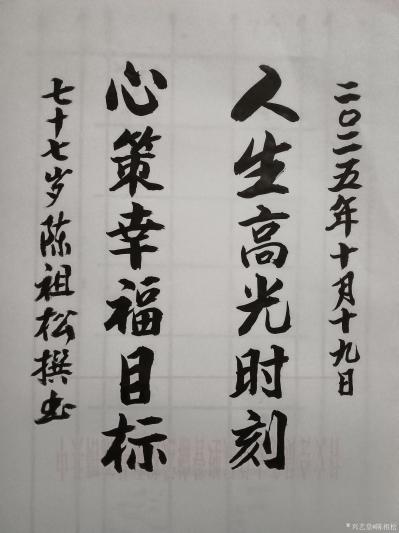 二〇二五年十月十九日
人生高光时刻
心策幸福目标
七十七岁陈祖松撰书